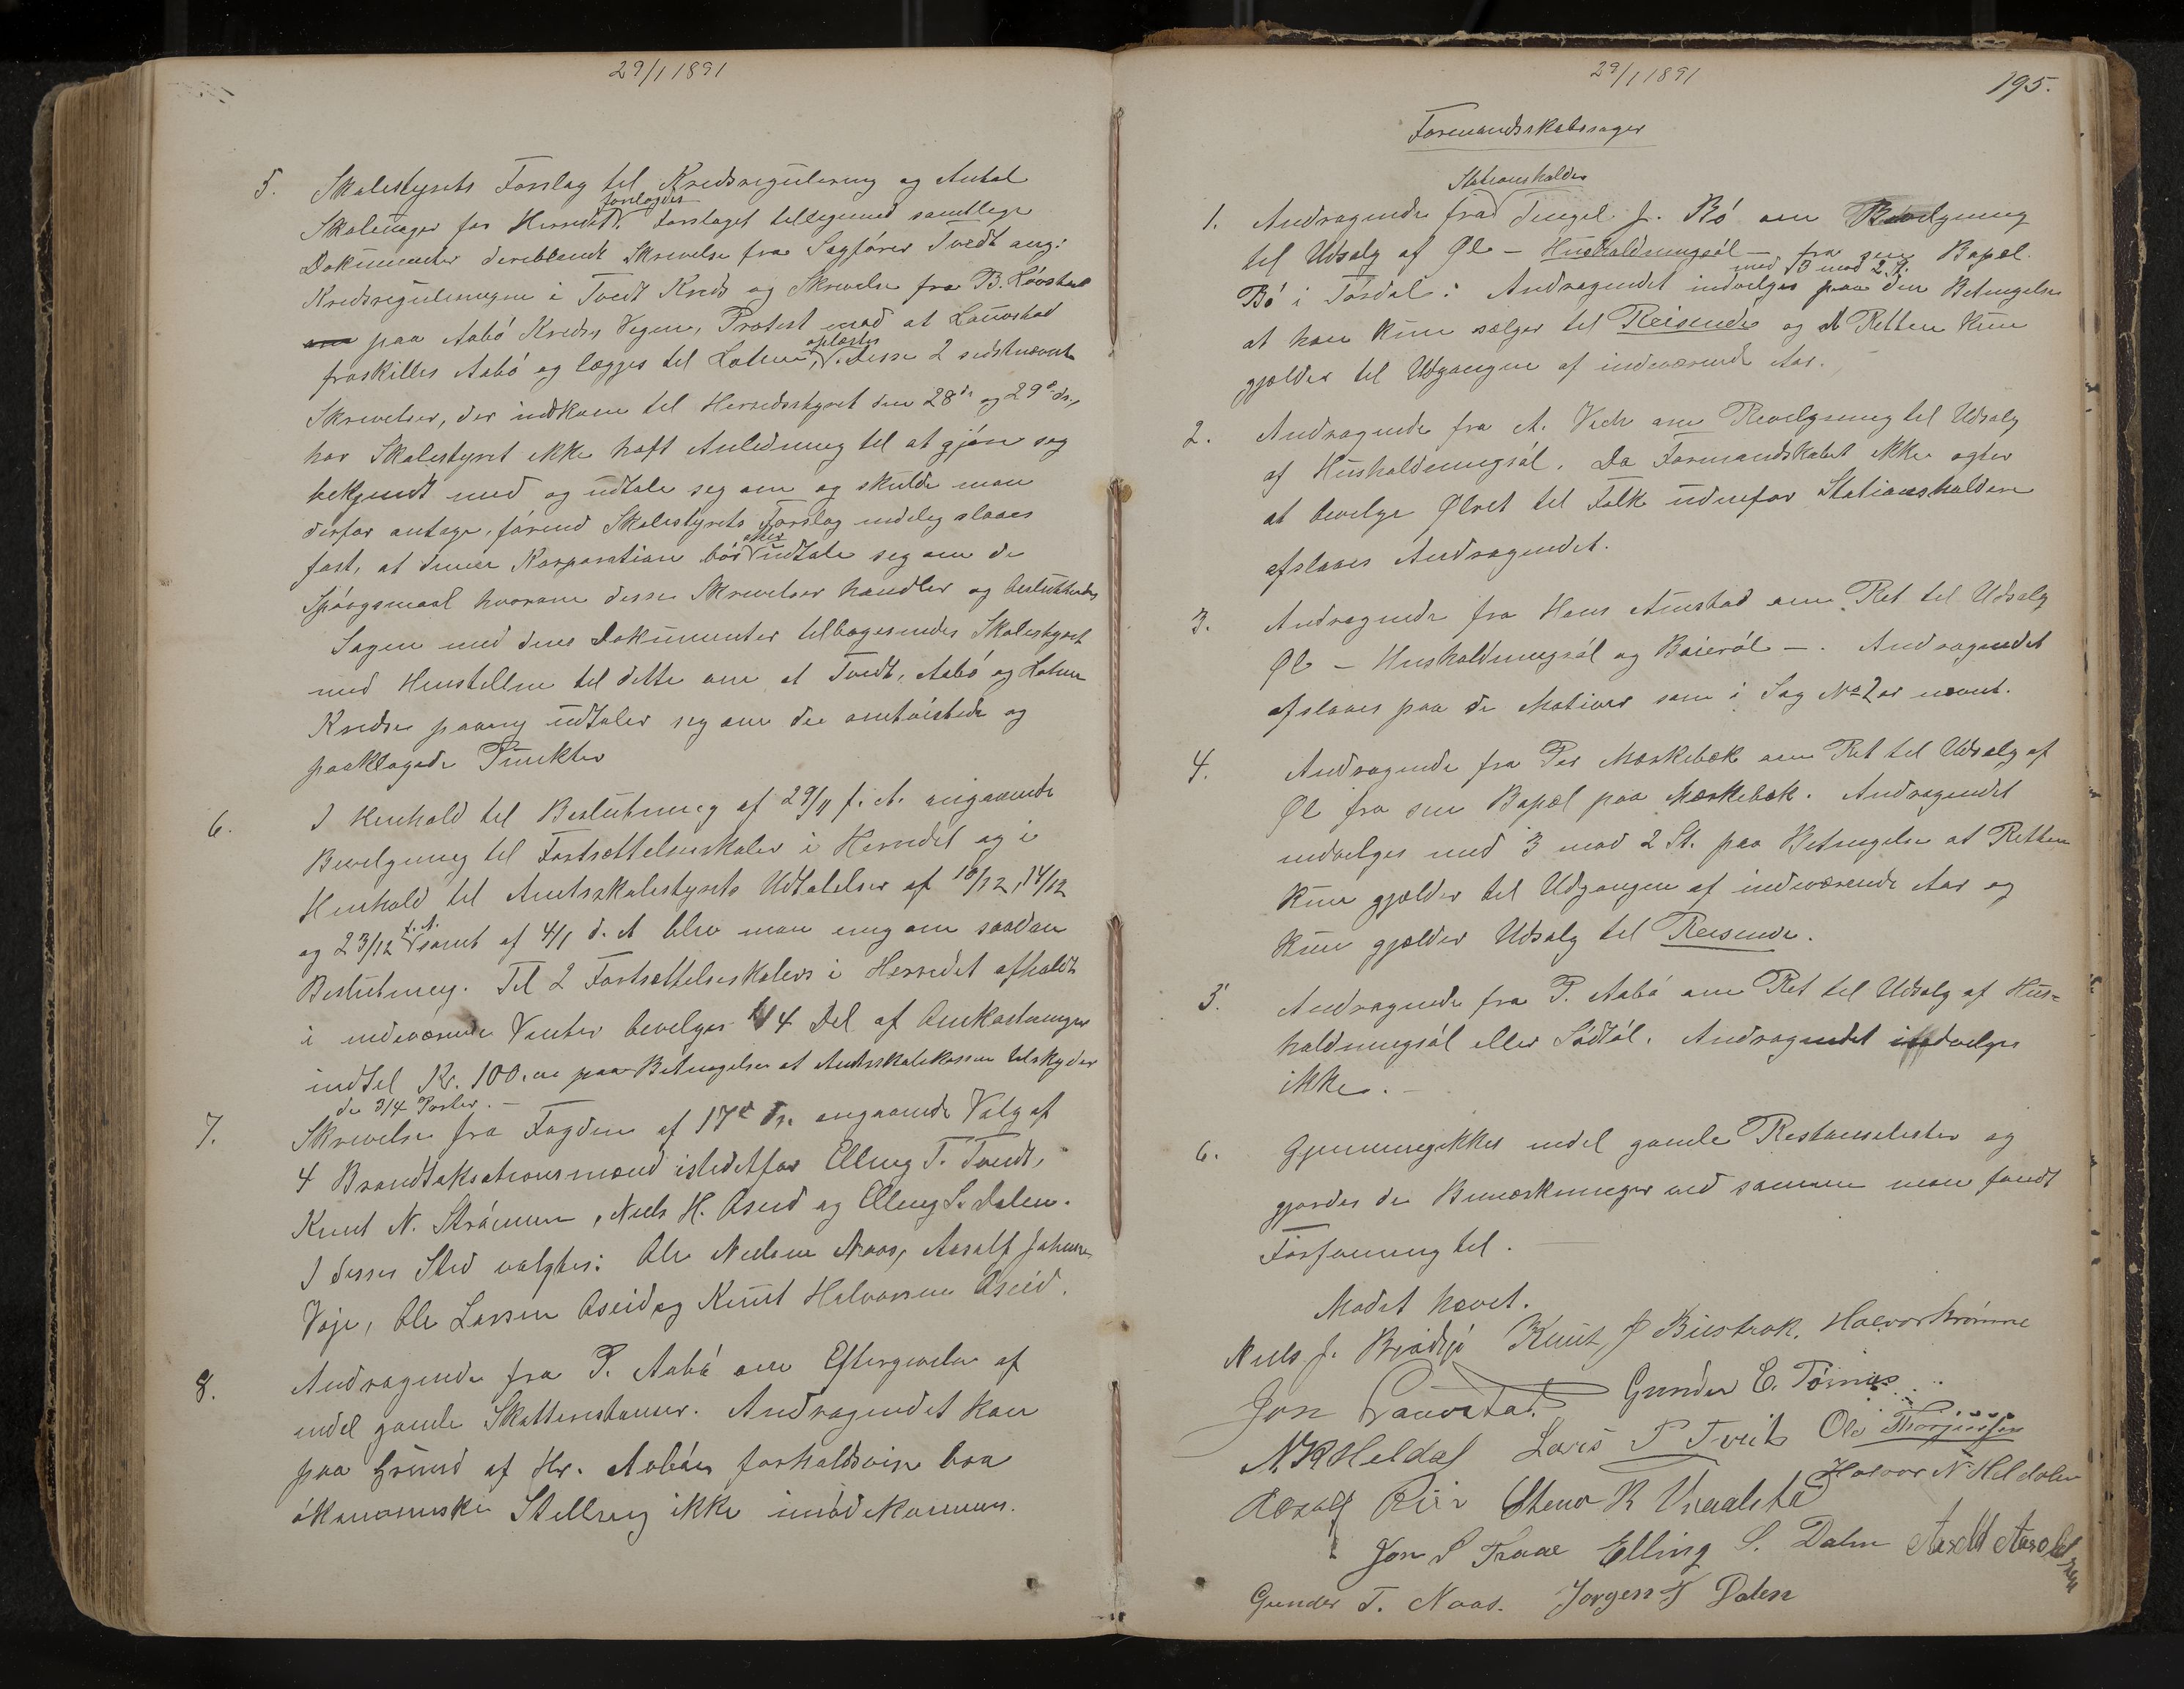 29/1 1891
5. Skolestyrets Forslag til Kredsregulering og Antal
Skoleuger for Herredet forelagdes. Forslaget tilligemed samtlige
Dokumenter deriblandt Skrivelse fra Sagfører Tvedt ang:
Kredsreguleringen i Tvedt Kreds og Skrivelse fra B. Lövstad
paa Aabö Kreds Vegne, Protest mod at Lauvstad
fraskilles Aabö og lægges til Holme, oplæstes. Disse 2 sidstnævnte
Skrivelser, der indkom til Herredsstyret den 28de og 29de ds.,
har Skolestyret ikke haft Anledning til at gjöre sig
bekjendt med og udtale sig om og skulde man
derfor antage, förend Skolestyrets Forslag endelig slaaes
fast, at denne Korporation bör atter udtale sig om de
Spörgsmaal hvorom disse Skrivelser handler og besluttedes
Sagen med dens Dokumenter tilbagesendes Skolestyret
med Henstillen til dette om at Tvedt, Aabö og Holme
Kredse paany udtaler sig om de omtvistede og
paaklagede Punkter
6. I Henhold til Beslutning af 29/11 f. A. angaaende
Bevilgning til Fortsættelsesskoler i Herredet og i
Henhold til Amtsskolestyrets Udtalelser af 10/12, 14/12
og 23/12 f. A. samt af 4/1 d. A blev man enig om saadan
Beslutning. Til 2 Fortsættelsesskoler i Herredet afholdt
i indeværende Vinter bevilges 1/4 Del af Omkostningerne
indtil Kr. 100,00 paa Betingelse at Amtsskolekassen tilskyder
de 3/4 Parter. —
7. Skrivelse fra Fogden af 17de ds. angaaende Valg af
4 Brandtaksationsmænd istedetfor Elling T. Tvedt,
Knut N. Strömme, Niels H. Oseid og Elling S. Dalen.
I disses Sted valgtes: Ole Nielsen Naas, Aasulf Johnsen
Voje, Ole Larsen Oseid og Knut Halvorsen Oseid.
8. Andragende fra P. Aabö om Eftergivelse af
endel gamle Skatterestancer. Andragendet kan
paa Grund af Hr. Aabös forholdsvis bra
ökonomiske Stilling ikke imödekommes.
29/1 1891
195.
Formandskabssager
1. Andragende fra Stationsholder Tengel J. Bö om Bevilgning
til Udsalg af Øl — Husholdningsöl — fra sin Bopæl
Bö i Tördal: Andragendet indvilges med 3 mod 2 St. paa den Betingelse
at han kun sælger til Reisende og at Retten kun
gjælder til Udgangen af indeværende Aar.
2. Andragende fra A. Vich om Bevilgning til Udsalg
af Husholdningsöl. Da Formandskabet ikke agter
at bevilge Ølret til Folk udenfor Stationsholdere
afslaaes Andragendet.
3. Andragende fra Hans Aunstad om Ret til Udsalg
Øl — Husholdningsöl og Baieröl —. Andragendet
afslaaes paa de Motiver som i Sag No 2 er nævnt.
4. Andragende fra Per Mærkebæk om Ret til Udsalg af
Øl fra sin Bopæl paa Mærkebæk. Andragendet
indvilges med 3 mod 2 St. paa Betingelse at Retten
kun gjælder til Udgangen af indeværende Aar og
kun gjælder Udsalg til Reisende.
5. Andragende fra P. Aabö om Ret til Udsalg af Hus=
holdningsöl eller Södtöl. Andragendet indvilges
ikke. —
6. Gjennemgikkes endel gamle Restanselister og
gjordes de Bemærkninger ved samme man fandt
Föranning til. —
Mödet hævet.
Niels J. Bråtsjö Knut J Bustrak. Halvor Strömme
Jon Lauvstad. Gunder E. Törnæs
N. K Heldal Lars P Tveit Ole Thorjussen
Aasolf Steno R Vraalstad Halvor N Heldalen
Jon S Traae Elling S. Dalen Aasold Aasoldsen
Gunder T. Naas. Jorgen T Dalen